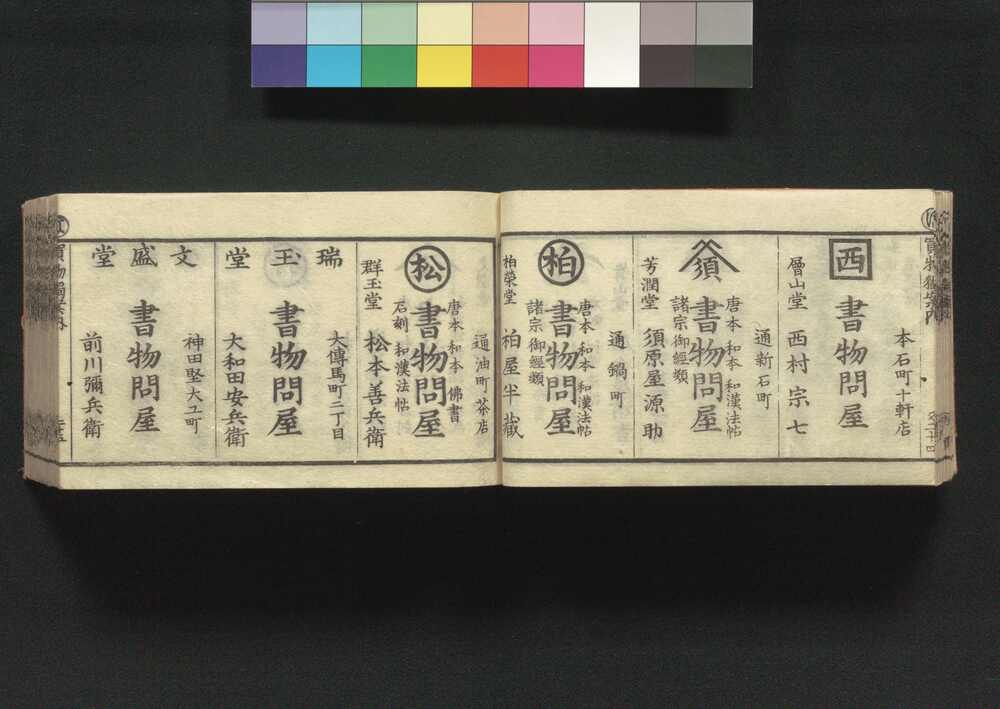 本石町十軒店
西
書物問屋
層山堂 西村宗七
通新石町
須
唐本 和本 和漢法帖
書物問屋
諸宗御經類
芳潤堂 須原屋源助
通鍋町
柏
唐本 和本 和漢法帖
書物問屋
諸宗御經類
柏榮堂 柏屋半蔵
通油町茶店
松
唐本 和本 佛書
書物問屋
石刻 和漢法帖
群玉堂 松本善兵衛
瑞玉堂
大傳馬町二丁目
書物問屋
大和田安兵衛
文盛堂
神田竪大工町
書物問屋
前川彌兵衛